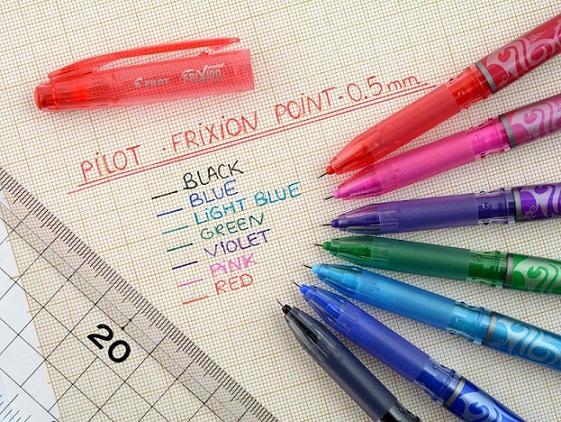 PILOT FRIXION point
PILOT . FRIXION POINT - 0.5 mm
— BLACK
— BLUE
— LIGHT BLUE
— GREEN
— VIOLET
— PINK
— RED
20